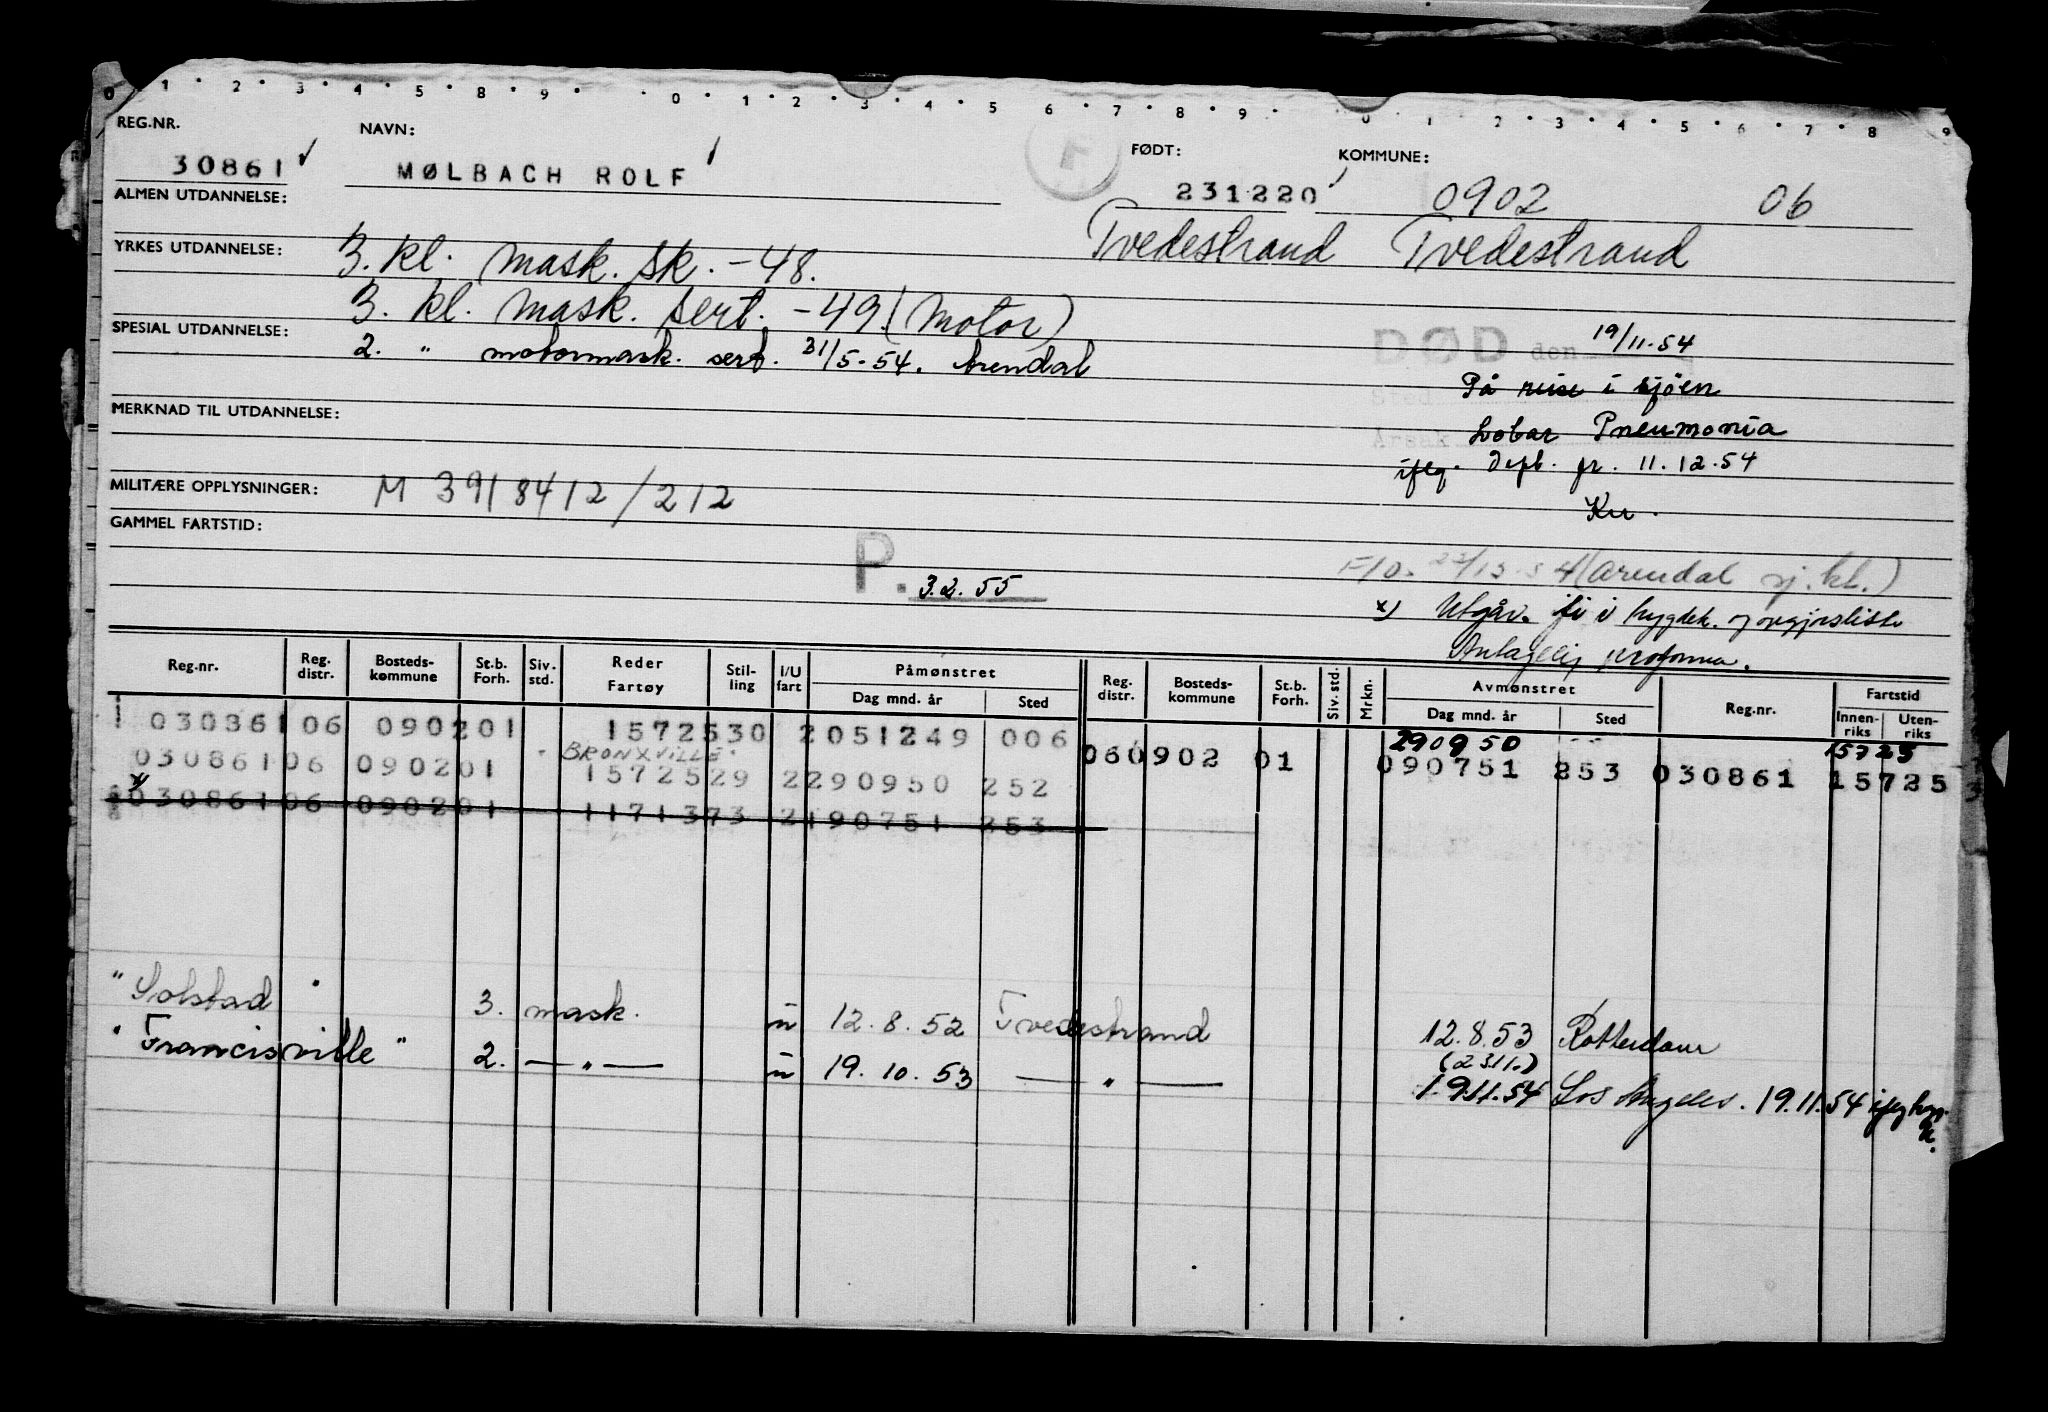 0 1 2 3 4 5 8 9 0 1 2 3 4 5 6 7 8 9 0 1 2 3 4 5 6 7 8 9
REG.NR. NAVN: FØDT: KOMMUNE:
30861 MØLBACH ROLF 231220 0902 06
ALMEN UTDANNELSE: Tvedestrand Tvedestrand
YRKES UTDANNELSE: 3. kl. mask. sk. -48.
3. kl. mask. sert. -49 (Motor)
SPESIAL UTDANNELSE: DØD den 19/11-54
2. " motormask. sert. 31/5-54. Arendal
Sted På reise i sjöen
MERKNAD TIL UTDANNELSE: Årsak Lobar Pneumonia
iføg. Depb. fr. 11.12.54
MILITÆRE OPPLYSNINGER: M 3918412/212
Kr.
GAMMEL FARTSTID:
(Arendal sj. kt.)
P. 3.2.55
x) Utgår.
Antagelig proforma.
Reg.nr. Reg. distr. Bosteds-kommune St.b. Forh. Siv. std. Reder Fartøy Stil-ling I/U fart Påmønstret Dag mnd. år Sted Reg. distr. Bosteds-kommune St.b. Forh. Siv. std. Mrkn. Avmønstret Dag mnd. år Sted Reg.nr. Fartstid Innen-riks Uten-riks
030861 06 0902 01 1572530 2 051249 006 290950 -- 15725
"BRONXVILLE"
030861 06 0902 01 1572529 2 290950 252 06 0902 01 090751 253 030861 15725
x) 030861 06 0902 01 1171373 2 190751 253
"Solstad" 3. mask. u 12.8.52 Tvedestrand 12.8.53 Rotterdam
(23.11.)
"Francisville" 2. — " — u 19.10.53 — " — 19.11.54 Los Angeles. 19.11.54